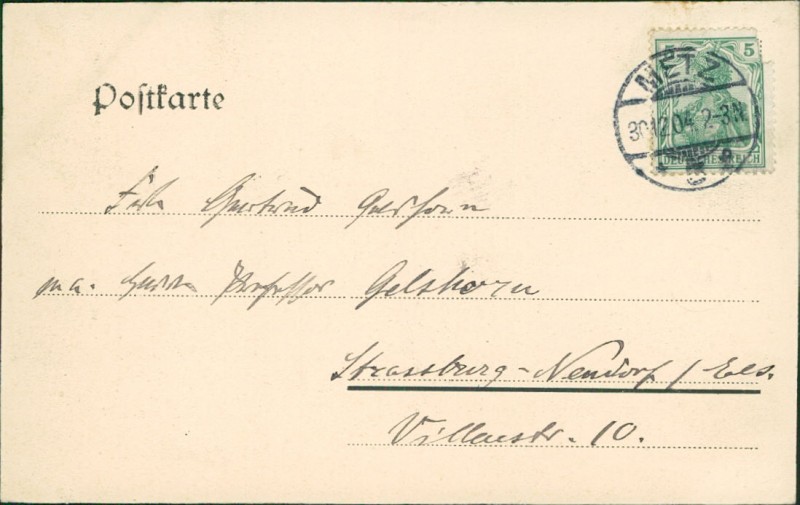 5 5
METZ
30.12.04. 2-3N
DEUTSCHES REICH
Postkarte
Frln Gertrud Gelshorn
Herrn Professor Gelshorn
Strassburg-Neudorf / Els.
Villenstr. 10.